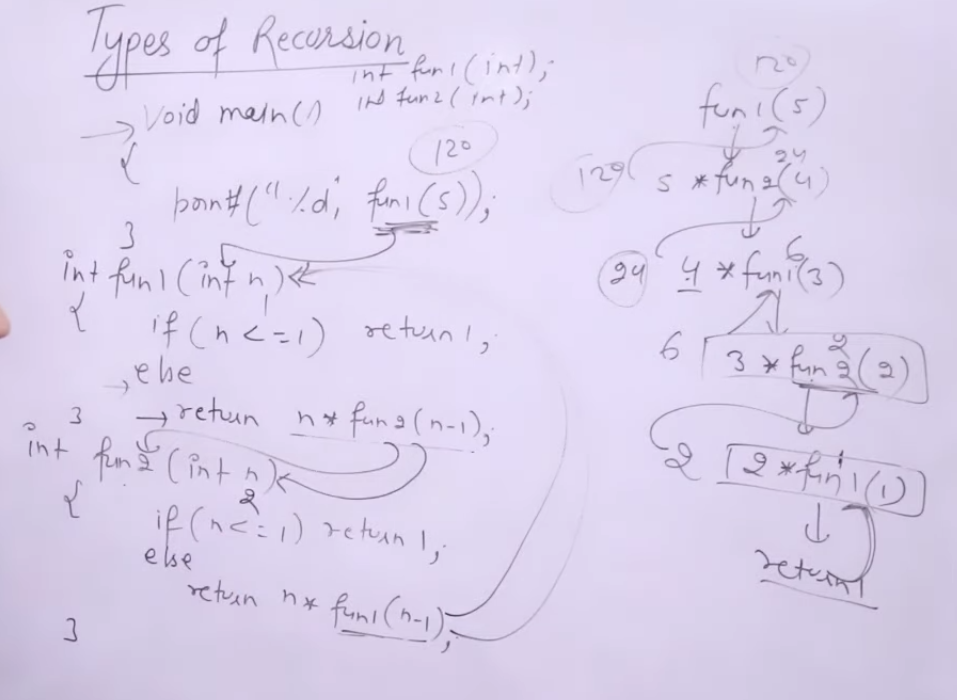 Types of Recursion
int fun1(int);
int fun2(int);
void main()
{
120
printf("%d", fun1(5));
}
int fun1(int n)
{
if(n<=1) return 1;
else
return n* fun2(n-1);
}
int fun2(int n)
{
if(n<=1) return 1;
else
return n* fun1(n-1);
}
120
fun1(5)
24
120 5 *fun2(4)
6
24 4 *fun1(3)
2
6 3 *fun2(2)
1
2 2 *fun1(1)
return 1